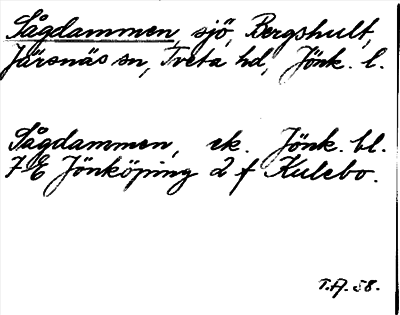 Sågdammen, sjö, Bergshult,
Järsnäs sn, Tveta hd, Jönk. l.
Sågdammen, ek. Jönk. bl.
7 E Jönköping 2 f Kulebo.
T.A. 58.